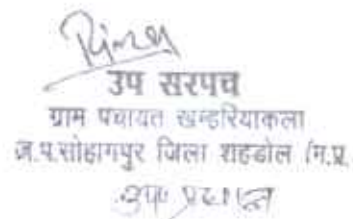 उप सरपंच
ग्राम पंचायत खम्हरियाकला
ज.प.सोहागपुर जिला शहडोल (म.प्र.